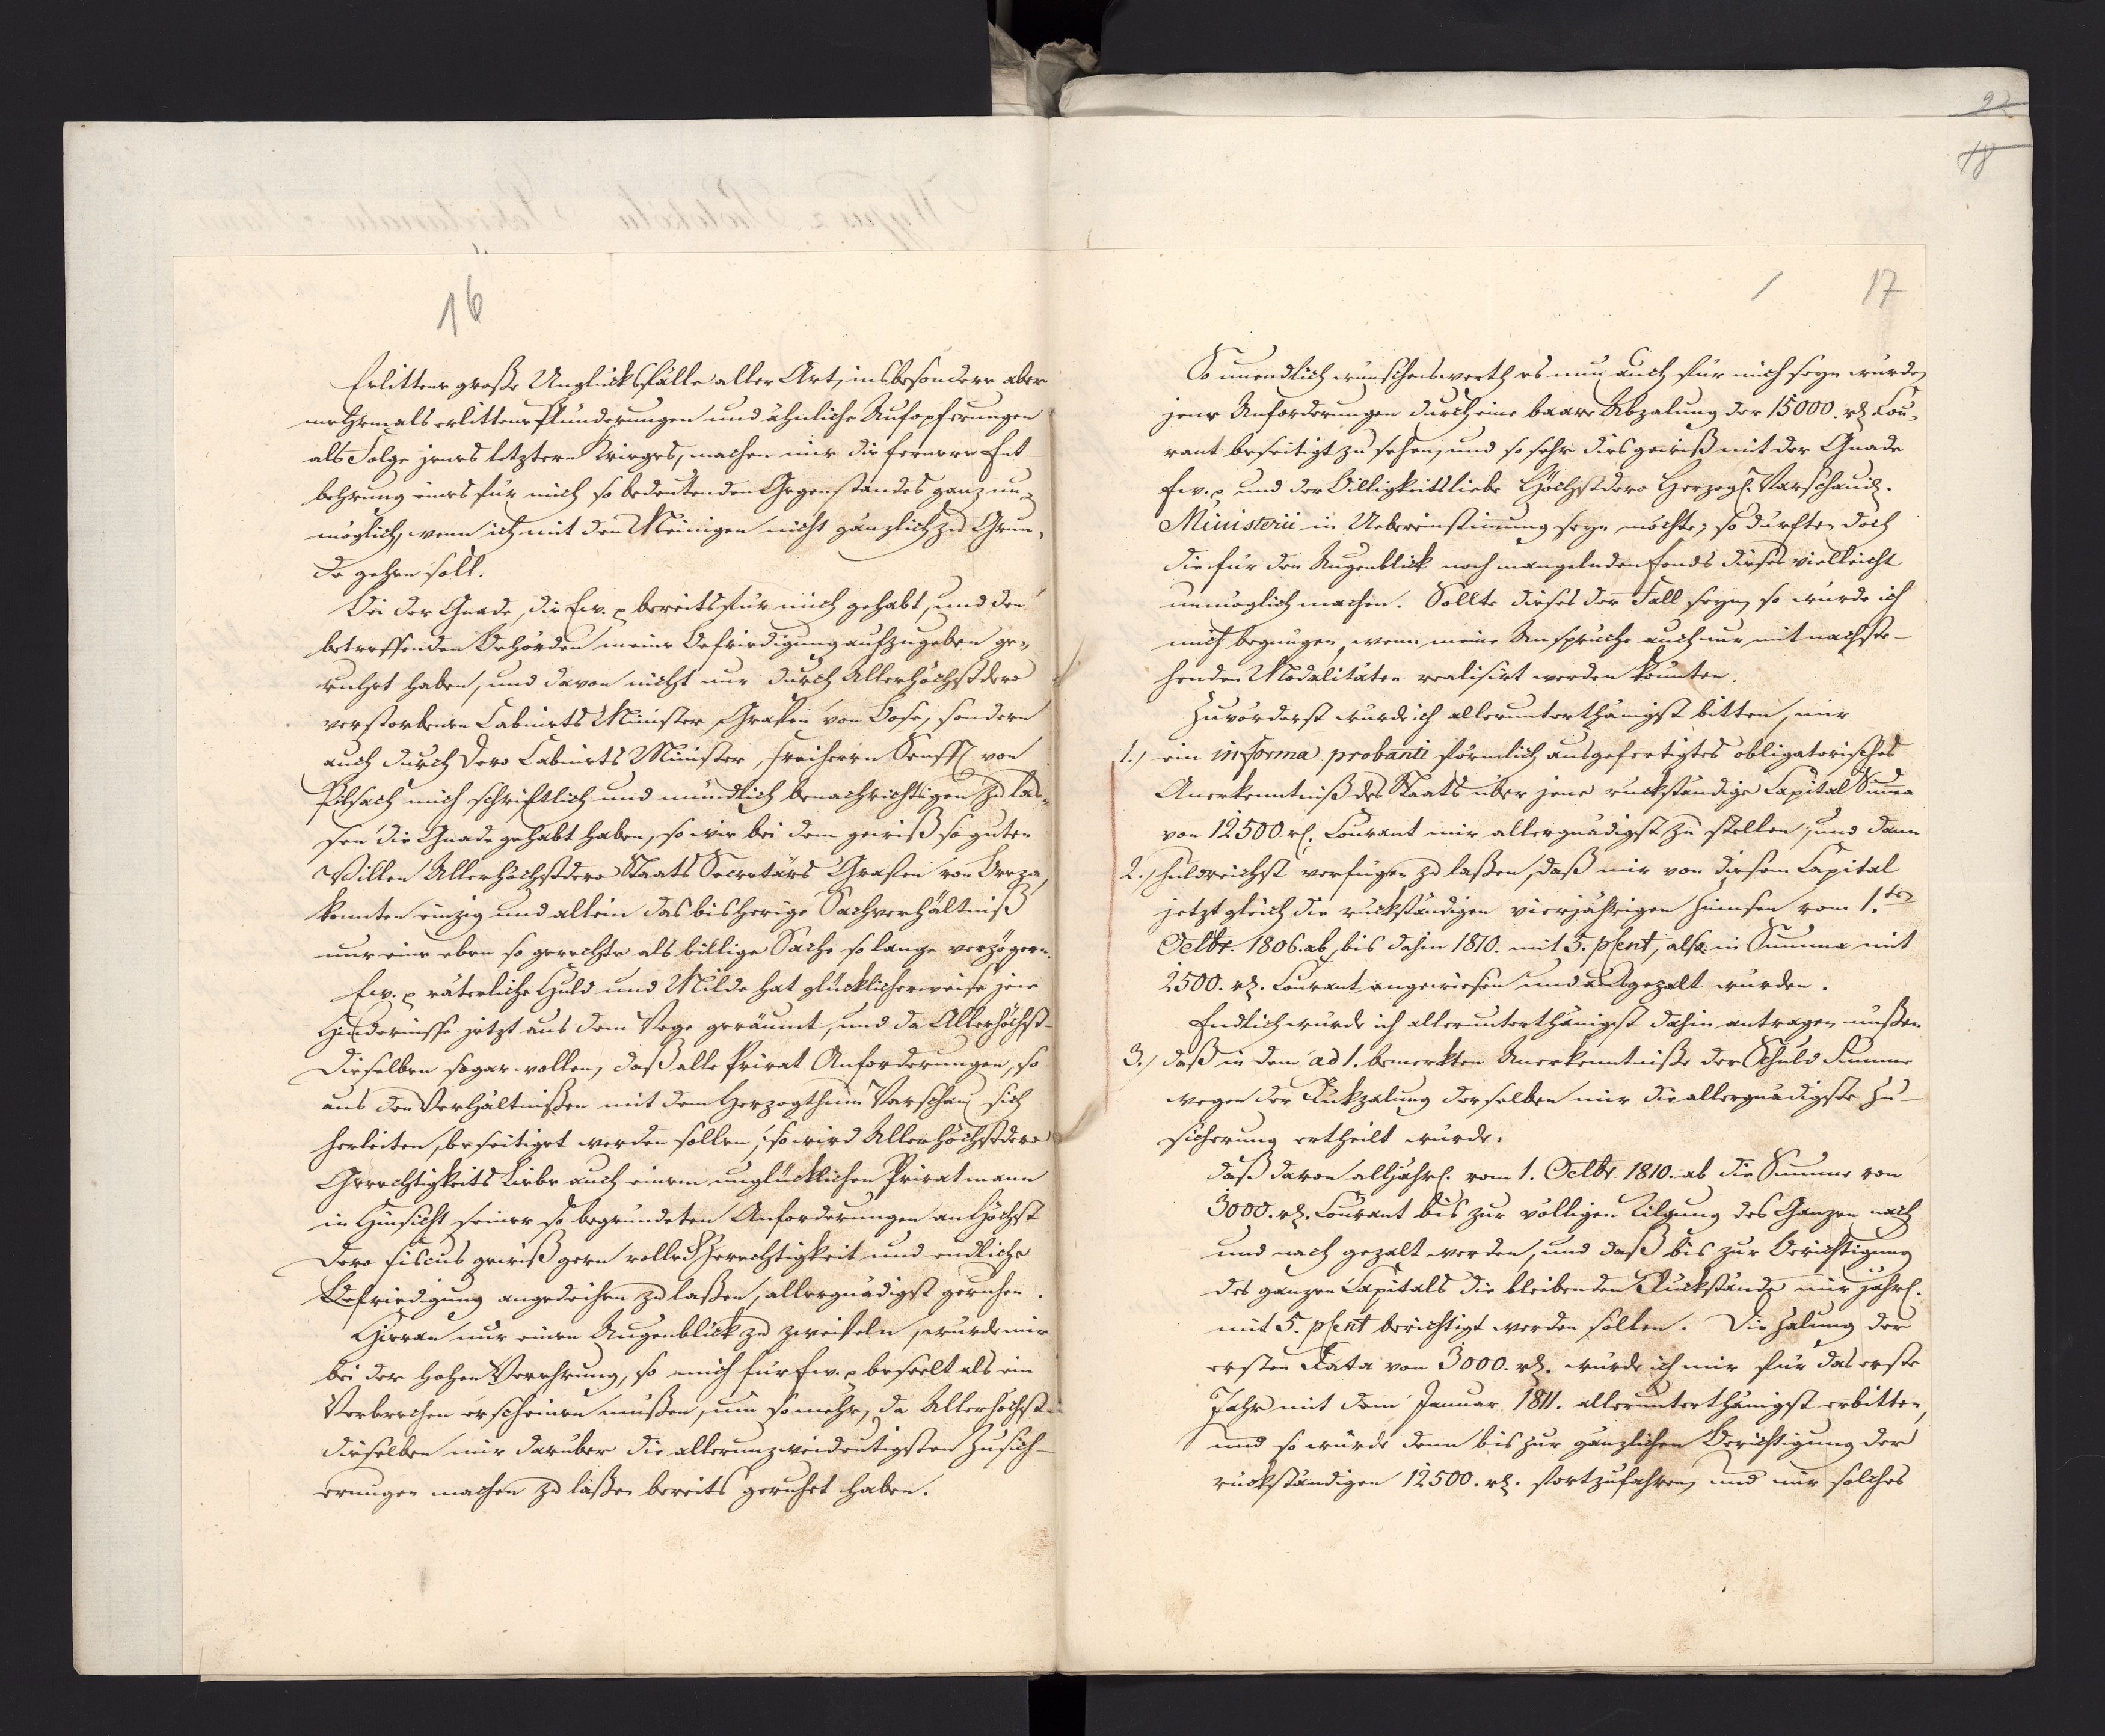 16
Erlittene große Unglücksfälle aller Art, insbesondere aber
mehrmals erlittene Plünderungen und ähnliche Aufopferungen
als Folge jenes letztern Krieges, machen mir die fernere Ent-
behrung eines für mich so bedeutenden Gegenstandes ganz un-
möglich, wenn ich mit den Meinigen nicht gänzlich zu Grun-
de gehen soll.
Bei der Gnade, die Ew. p bereits für mich gehabt, und den
betreffenden Behörden meine Befriedigung aufzugeben ge-
ruhet haben, und davon nicht nur durch Allerhöchstdero
verstorbenen Cabinets Minister, Grafen von Bose, sondern
auch durch Dero Cabinets Minister, Freiherrn Senfft von
Pilsach mich schriftlich und mündlich benachrichtigen zu las-
sen die Gnade gehabt haben, so wie bei dem gewiß so guten
Willen Allerhöchstdero Staats Secretärs Grafen von Breza,
konnten einzig und allein das bisherige Sachverhältniß
nur eine eben so gerechte als billige Sache so lange verzögern.
Ew. p väterliche Huld und Milde hat glücklicherweise jene
Hindernisse jetzt aus dem Wege geräumt, und da Allerhöchst-
Dieselben sogar wollen, daß alle Privat Anforderungen, so
aus den Verhältnißen mit dem Herzogthum Warschau sich
herleiten, beseitiget werden sollen; so wird Allerhöchstdero
Gerechtigkeits Liebe auch einem unglücklichen Privatmann
in Hinsicht seiner so begründeten Anforderungen an Höchst
Dero Fiscus gewiß gern volle Gerechtigkeit und endliche
Befriedigung angedeihen zu laßen, allergnädigst geruhen.
Hieran nur einen Augenblick zu zweifeln, würde mir
bei der hohen Verehrung, so mich für Ew. p beseelt als ein
Verbrechen erscheinen müßen, um so mehr, da Allerhöchst-
dieselben mir darüber die allerunzweideutigsten Zusich-
erungen machen zu laßen bereits geruhet haben.
92
18
17
So unendlich wünschenswerth es nun auch für mich seyn würde,
jene Anforderungen durch eine baare Abzalung der 15000. rh Cou-
rant beseitigt zu sehen, und so sehr dies gewiß mit der Gnade
Ew. p und der Billigkeitsliebe Höchstdero Herzogl. Warschauisch.
Ministerii in Uebereinstimmung seyn möchte; so dürften doch
die für den Augenblick noch mangelnden Fonds dieses vielleicht
unmöglich machen. Sollte dieses der Fall seyn, so würde ich
mich begnügen, wenn meine Ansprüche auch nur mit nachste-
henden Modalitäten realisirt werden könnten.
Zuvörderst würde ich allerunterthänigst bitten, mir
1.) ein in forma probanti förmlich ausgefertigtes obligatorisches
Anerkenntniß des Staats über jene rückständige Capital Summa
von 12500. rh. Courant mir allergnädigst zu stellen, und dann
2.) huldreichst verfügen zu laßen, daß mir von diesem Capital
jetzt gleich die rückständigen vierjährigen Zinsen vom 1.ten
Octbr. 1806. ab, bis dahin 1810. mit 5. pCent, also in Summa mit
2500. rh. Courant angewiesen und ausgezalt würden.
Endlich würde ich allerunterthänigst dahin antragen müßen
3.) daß in dem ad 1. bemerkten Anerkenntniße der Schuld Summe
wegen der Rükzalung derselben mir die allergnädigste Zu-
sicherung ertheilt würde.
daß davon alljährl. vom 1. Octbr. 1810. ab die Summe von
3000. rh. Courant bis zur völligen Tilgung des Ganzen nach
und nach gezalt werden, und daß bis zur Berichtigung
des ganzen Capitals die bleibenden Rückstände mir jährl.
mit 5. pCent berichtigt werden sollen. Die Zalung der
ersten Rata von 3000. rh. würde ich mir für das erste
Jahr mit dem Januar 1811. allerunterthänigst erbitten,
und so würde denn bis zur gänzlichen Berichtigung der
rückständigen 12500. rh. fortzufahren, und mir solches